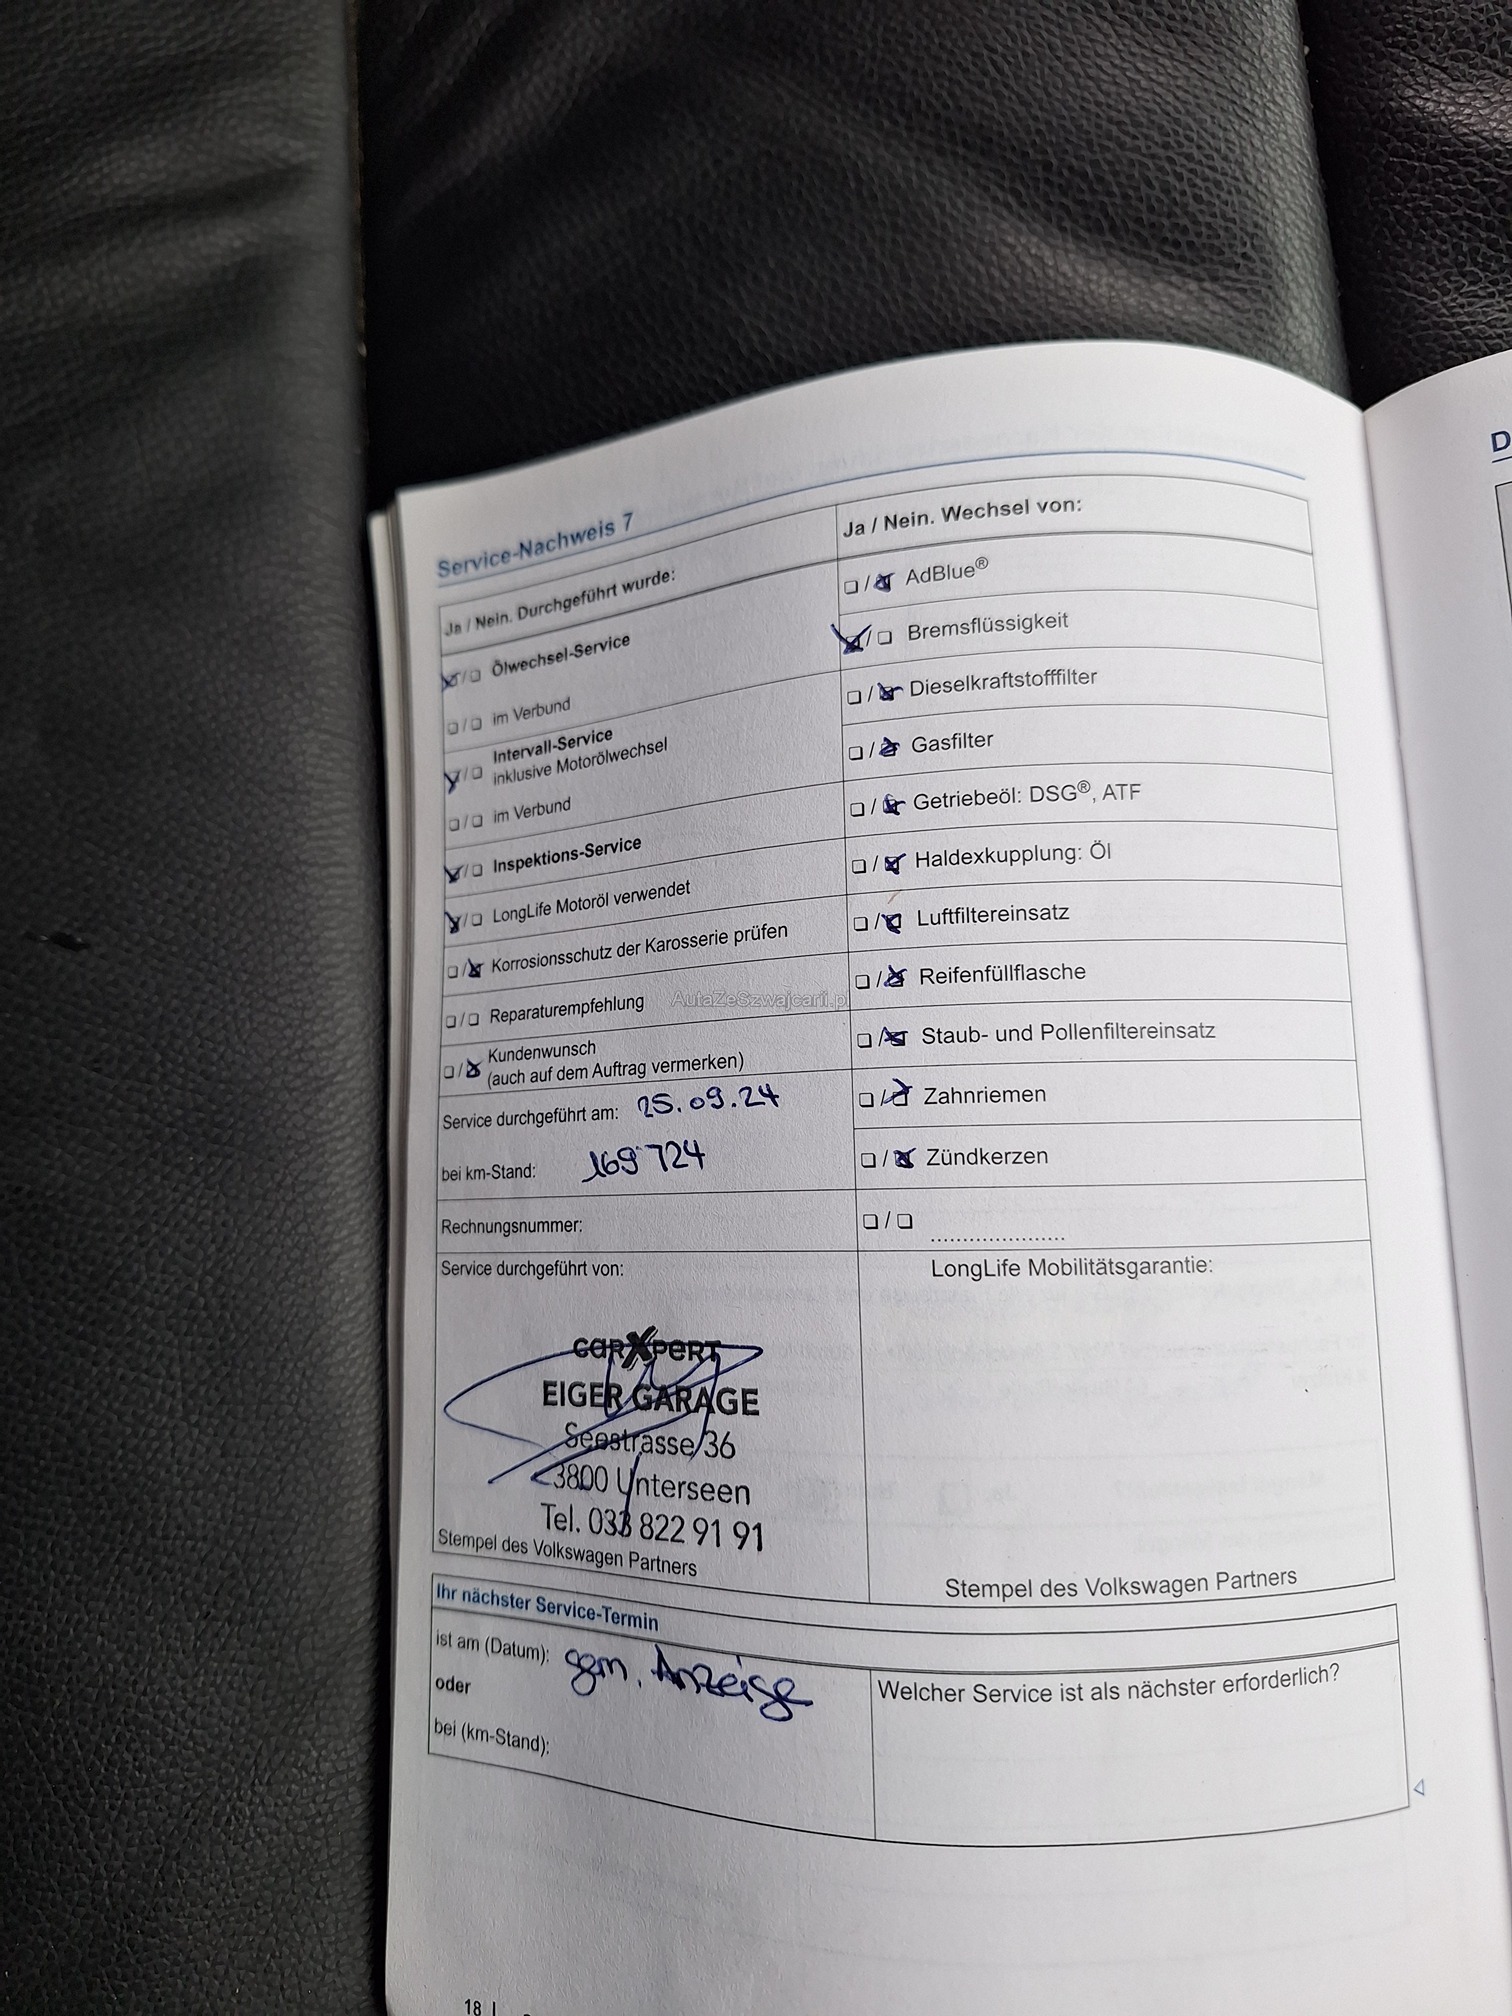 Service-Nachweis 7
Ja / Nein. Durchgeführt wurde:
Ölwechsel-Service
im Verbund
Intervall-Service
inklusive Motorölwechsel
im Verbund
Inspektions-Service
LongLife Motoröl verwendet
Korrosionsschutz der Karosserie prüfen
Reparaturempfehlung
Kundenwunsch
(auch auf dem Auftrag vermerken)
Service durchgeführt am: 25.09.24
bei km-Stand: 169'724
Rechnungsnummer:
Service durchgeführt von:
carXpert
EIGER GARAGE
Seestrasse 36
3800 Unterseen
Tel. 033 822 91 91
Stempel des Volkswagen Partners
Ja / Nein. Wechsel von:
AdBlue®
Bremsflüssigkeit
Dieselkraftstofffilter
Gasfilter
Getriebeöl: DSG®, ATF
Haldexkupplung: Öl
Luftfiltereinsatz
Reifenfüllflasche
Staub- und Pollenfiltereinsatz
Zahnriemen
Zündkerzen
......................
LongLife Mobilitätsgarantie:
Stempel des Volkswagen Partners
Ihr nächster Service-Termin
ist am (Datum): gem. Anzeige
oder
bei (km-Stand):
Welcher Service ist als nächster erforderlich?
18
D
AutaZeSzwajcarii.pl